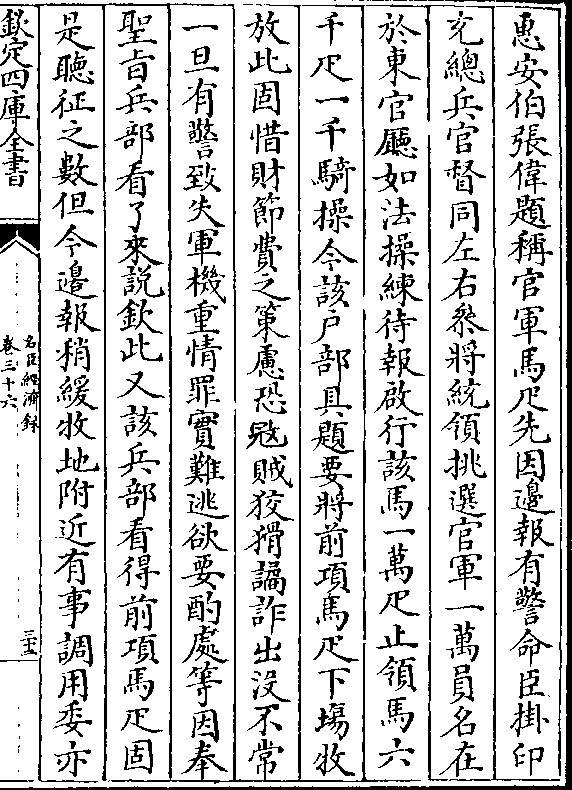 惠安伯張偉題稱官軍馬疋先因邊報有警命臣掛印
充總兵官督同左右叅將統領挑選官軍一萬員名在
於東官㕔如法操練待報啟行該馬一萬疋止領馬六
千疋一千騎操今該户部具題要將前項馬疋下塲牧
放此固惜財節費之策慮恐冦賊狡猾譎詐出沒不常
一旦有警致失軍機重情罪實難逃欲要酌處等因奉
聖旨兵部看了來說欽此又該兵部看得前項馬疋固
是聽征之數但今邊報稍緩牧地附近有事調用委亦
欽定四庫全書
名臣經濟錄
卷三十六
三十五